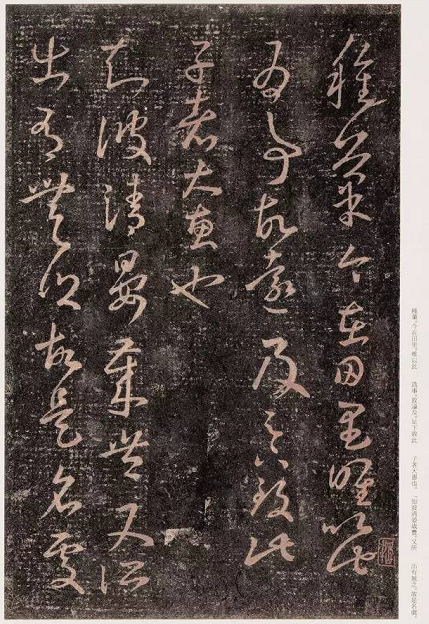 種菓今在田里唯以此
為事故遠及足下致此
子者大惠也
知彼清晏歲豐又所
出有無乏故是名處
種菓。今在田里,惟以此 為事,故遠及。足下致此 子者,大惠也。 知彼清晏歲豐,又所 出有無乏,故是名處。